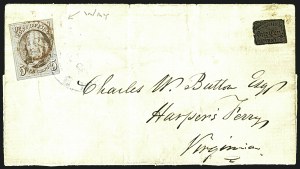 WAY
5 5
Charles W. Button Esq
Harper's Ferry
Virginia